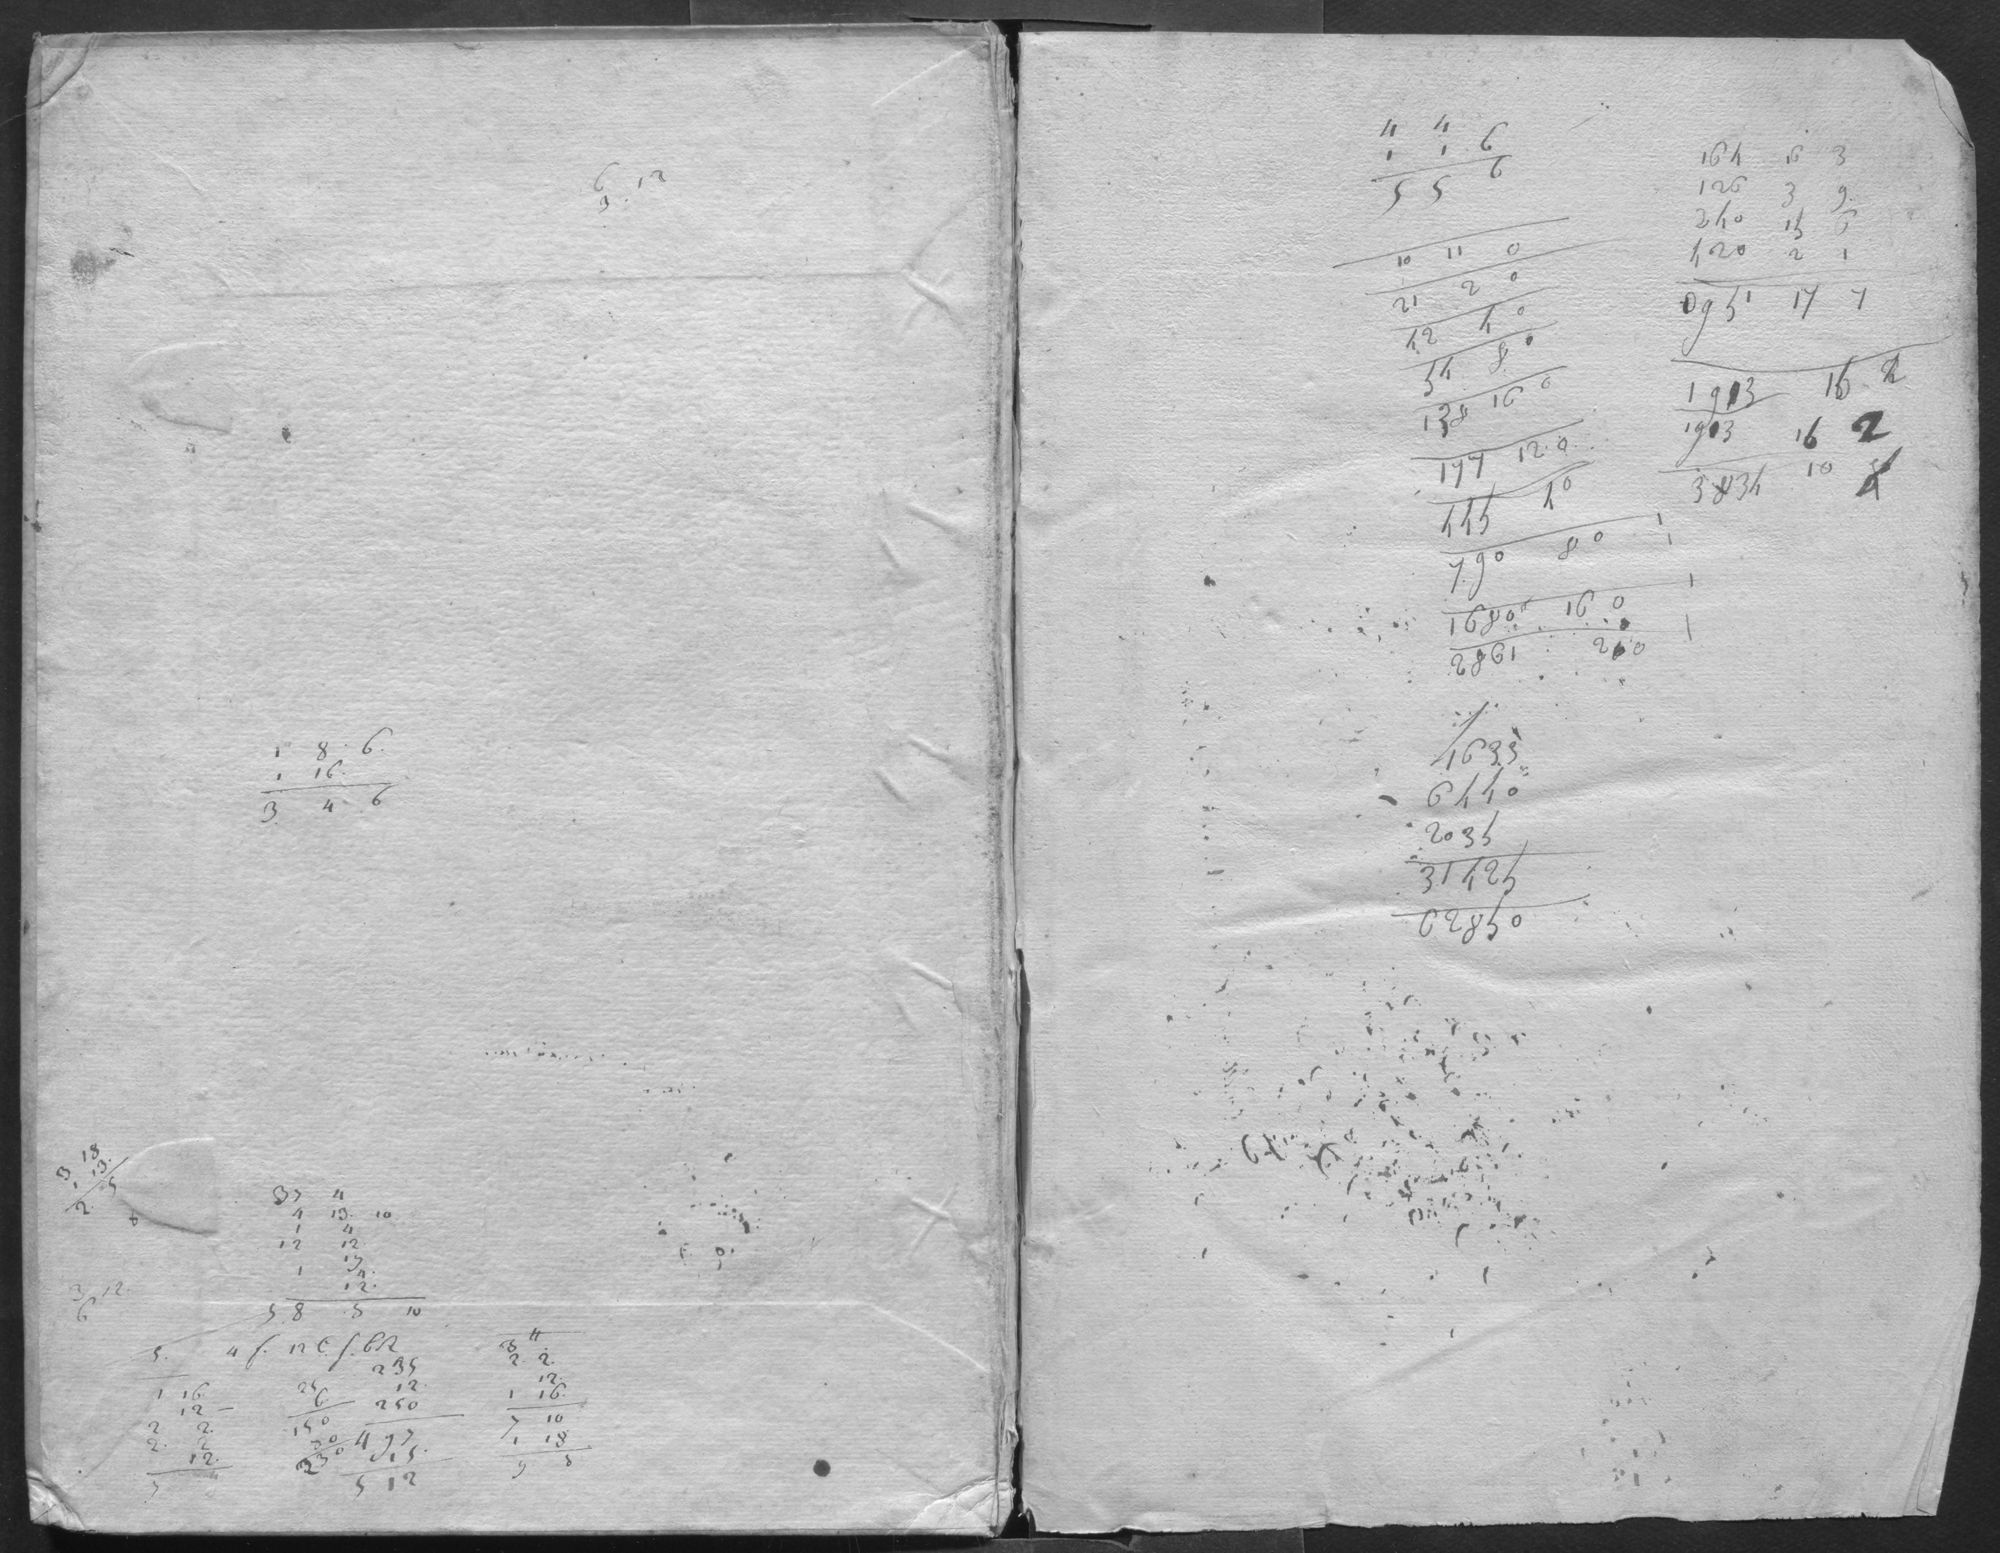 6 12
3
1 8 6
1 16
3 4 6
3 18
13
2 5
3 12
6
37 4
4 13 10
1 4
12 12
13
1 4
12
58 5 10
5.
1 16
12 —
2 2
2 2
12
5
4 f. 12 C. f.
25
6
150
80
230
235
12
250
497
15
512
3 4
2 2
12
1 16
7 10
1 18
9 8
4 4
1 1 6
5 5 6
10 11 0
21 2 0
42 4 0
54 8 0
138 16 0
177 12 0
445 4 0
790 8 0
1680 16 0
2861 2 0
1635
6440
2035
31425
62850
164 16 3
126 3 9
240 15 6
420 2 1
951 17 7
1913 16 2
1913 16 2
3834 10 4